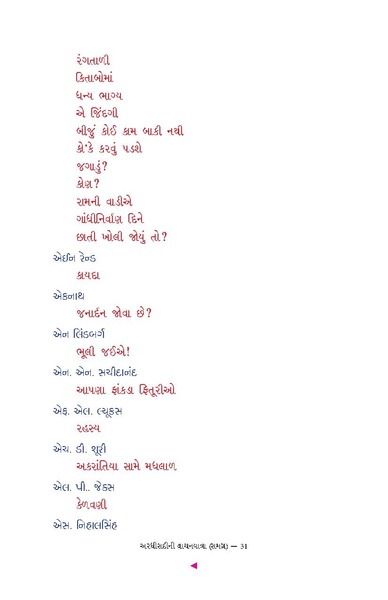 રંગતાળી
કિતાબોમાં
ધન્ય ભાગ્ય
એ જિંદગી
બીજું કોઈ કામ બાકી નથી
કો'કે કરવું પડશે
જગાડું?
કોણ?
રામની વાડીએ
ગાંધીનિર્વાણ દિને
છાતી ખોલી જોયું તો?
એઈન રેન્ડ
કાયદા
એકનાથ
જનાર્દન જોવા છે?
એન લિંડબર્ગ
ભૂલી જઈએ!
એન. એન. સચીદાનંદ
આપણા ફાંકડા ફિતૂરીઓ
એફ. એલ. લ્યૂકસ
રહસ્ય
એચ. ડી. શૂરી
અકરાંતિયા સામે મધલાળ
એલ. પી.. જેક્સ
કેળવણી
એસ. નિહાલસિંહ
અરધીસદીની વાચનયાત્રા (સમગ્ર) — 31